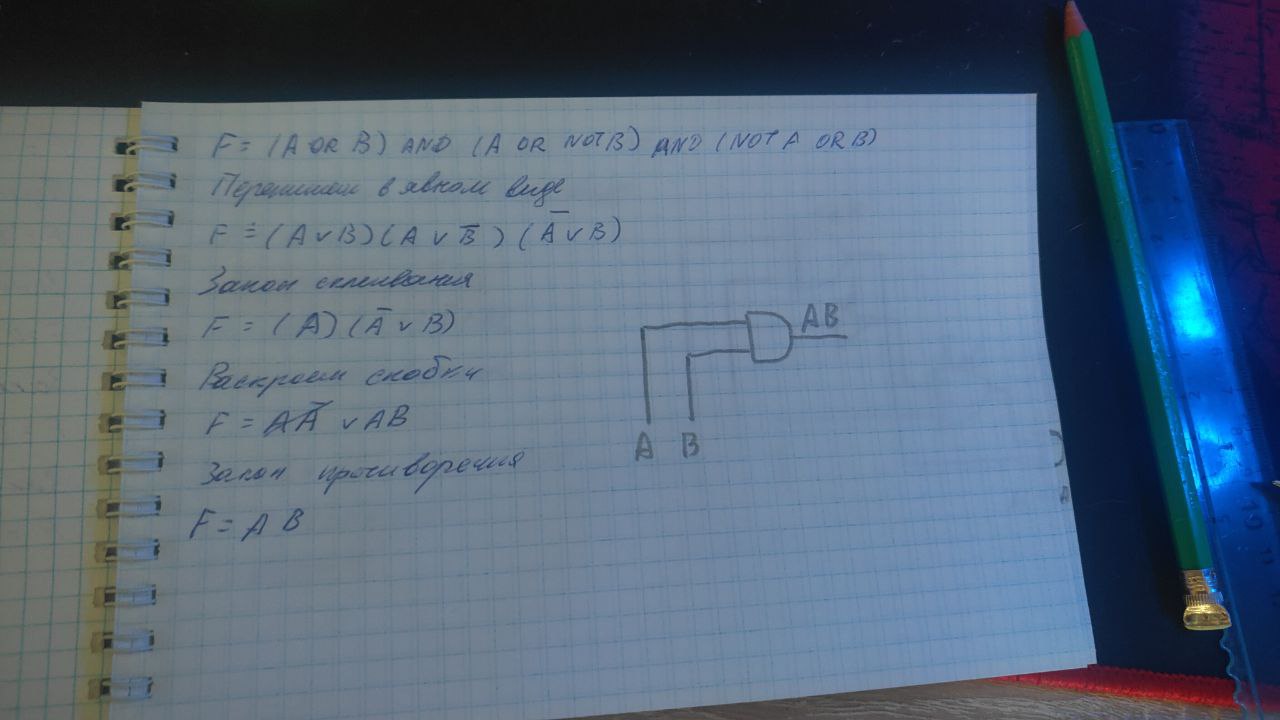 F = (A OR B) AND (A OR NOT B) AND (NOT A OR B)
Перепишем в явном виде
F = (A ∨ B) (A ∨ B̅) (A̅ ∨ B)
Закон склеивания
F = (A) (A̅ ∨ B)
Раскроем скобки
F = AA̅ ∨ AB
Закон противоречия
F = A B
AB
A B